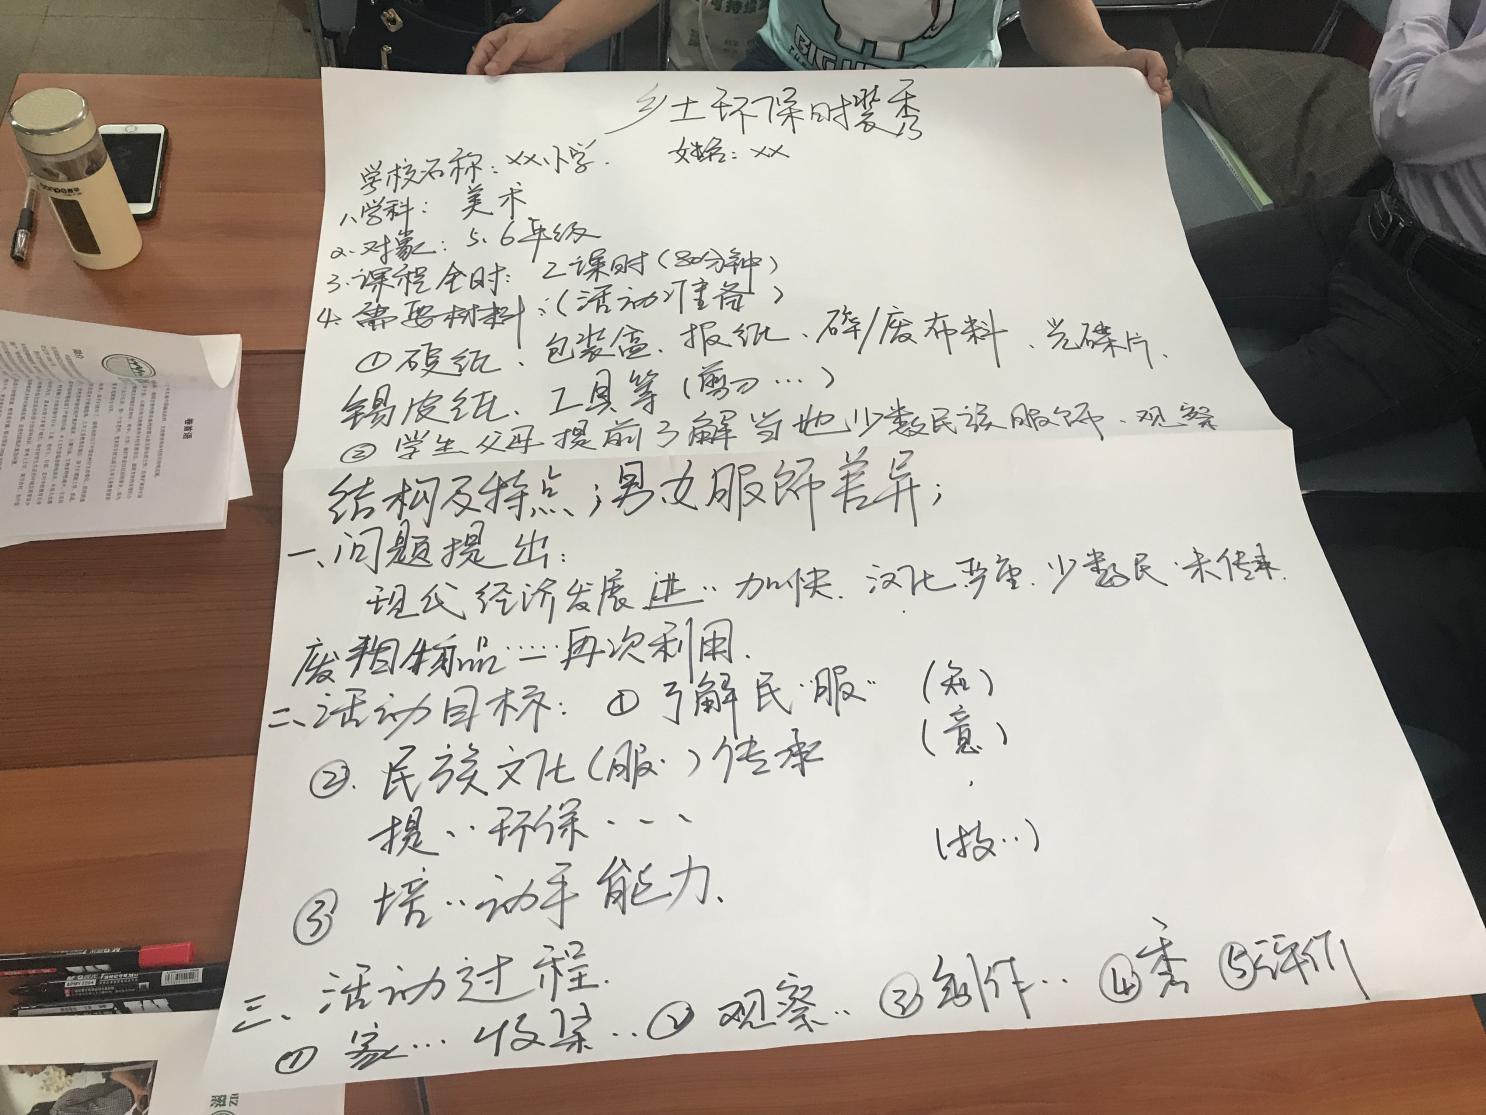 乡土环保时装秀
学校名称：XX小学. 姓名：XX
1、学科： 美术
2、对象：5、6年级
3、课程全时：2课时（80分钟）
4、需要材料：（活动准备）
①硬纸、包装盒、报纸、碎/废布料、光碟片、
锡皮纸、工具等（剪刀…）
②学生父母提前了解当地少数民族服饰、观察
结构及特点；男女服饰差异；
一、问题提出：
现代经济发展进‥加快、汉化严重、少数民·未传承.
废 物品……二再次利用.
二、活动目标：①了解民‥服‥ （知）
②.民族文化（服·）传承 （意）
提‥环保··· （技‥）
③ 培‥动手能力.
三、活动过程.
①家…收集‥②观察‥③创作‥④秀⑤评价
BIG